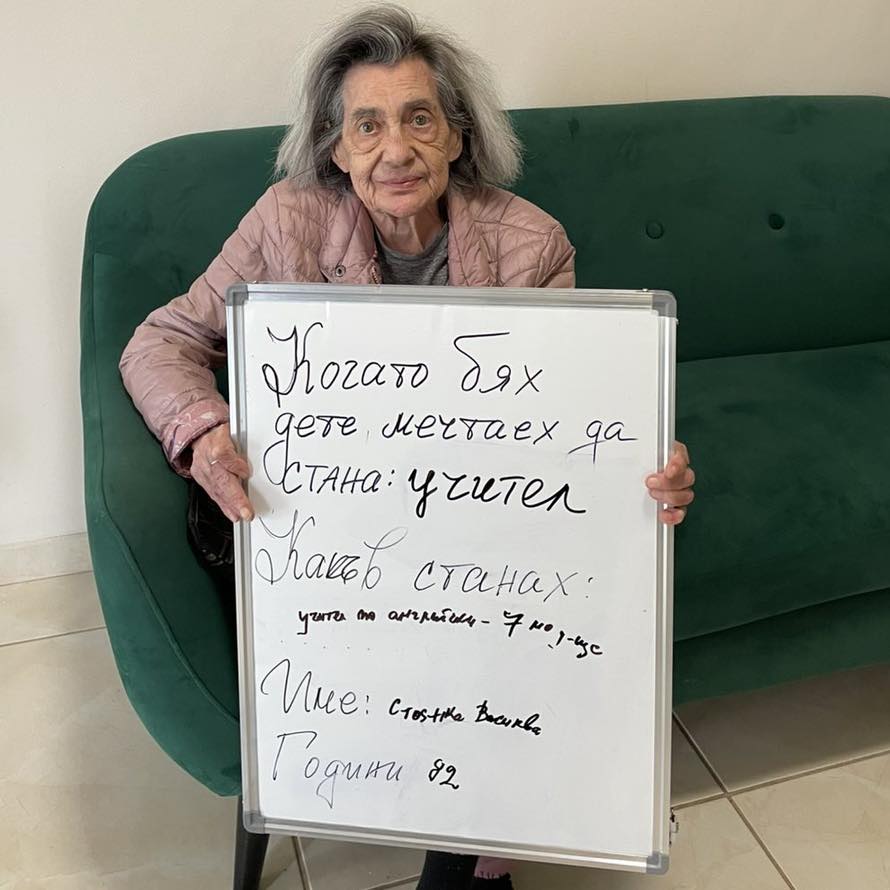 Когато бях
дете, мечтаех да
стана: учител
Какъв станах:
учител по английски - 7 мо
Име: Стоянка
Години 82